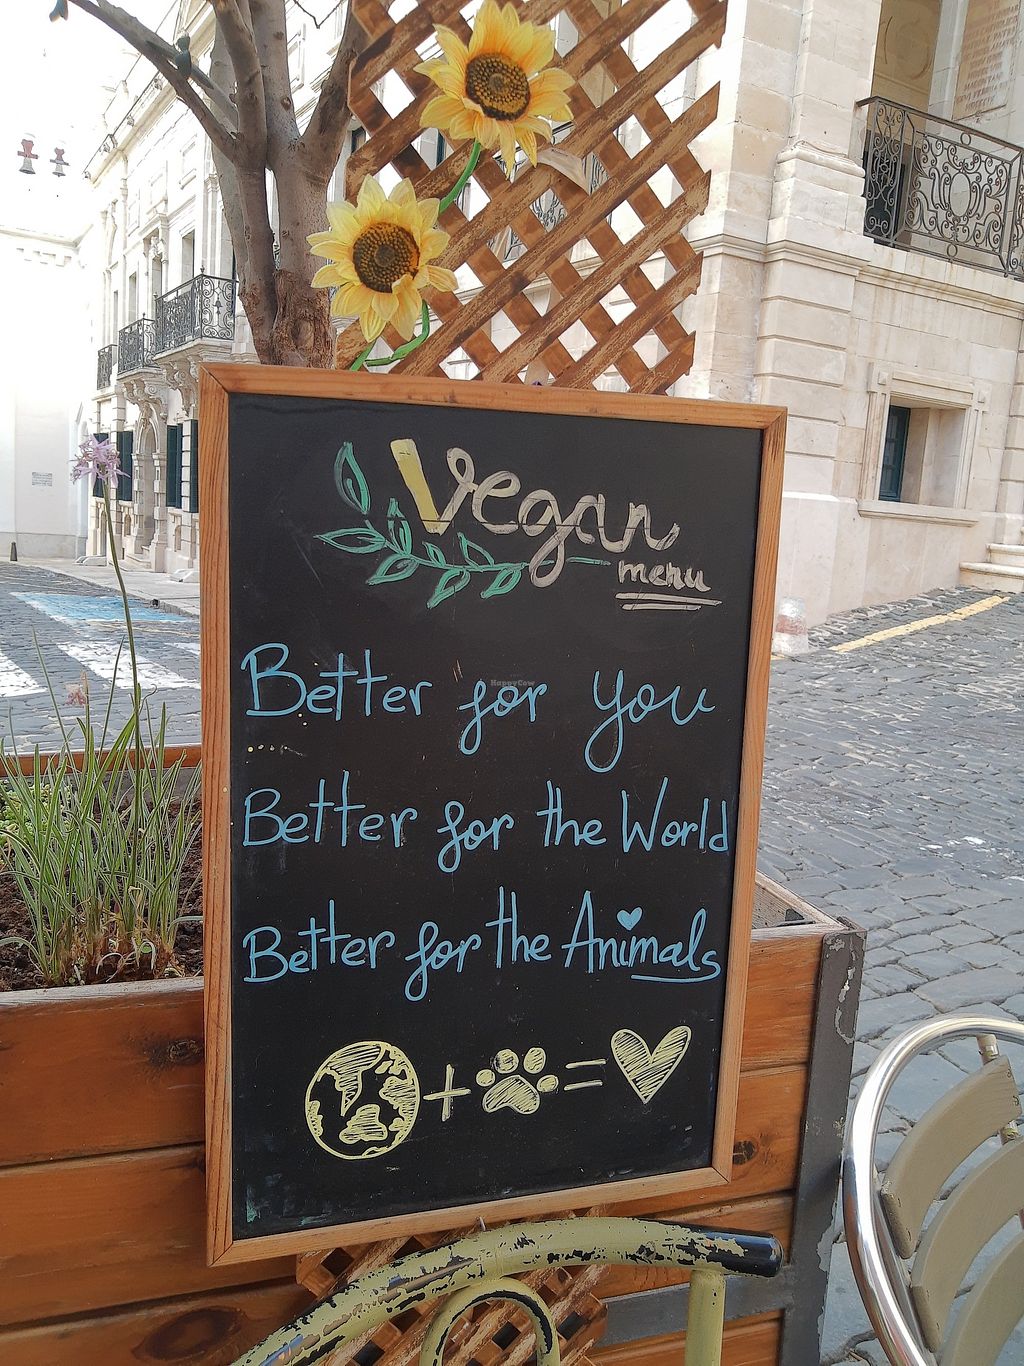 Vegan
menu
Better for you
HappyCow
Better for the World
Better for the Animals
+ =